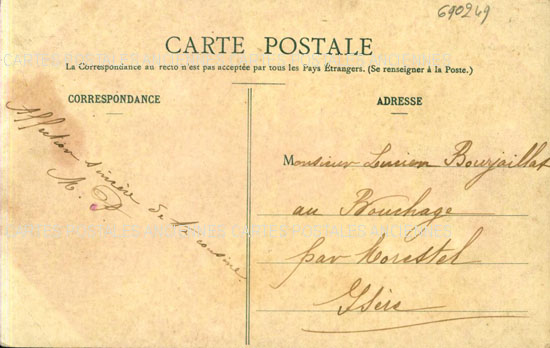 690249
CARTE POSTALE
La Correspondance au recto n'est pas acceptée par tous les Pays Étrangers. (Se renseigner à la Poste.)
CORRESPONDANCE
Affection sincère de
M. D
ADRESSE
Monsieur Lucien Bourjaillat
au Bouchage
par Morestel
Isère